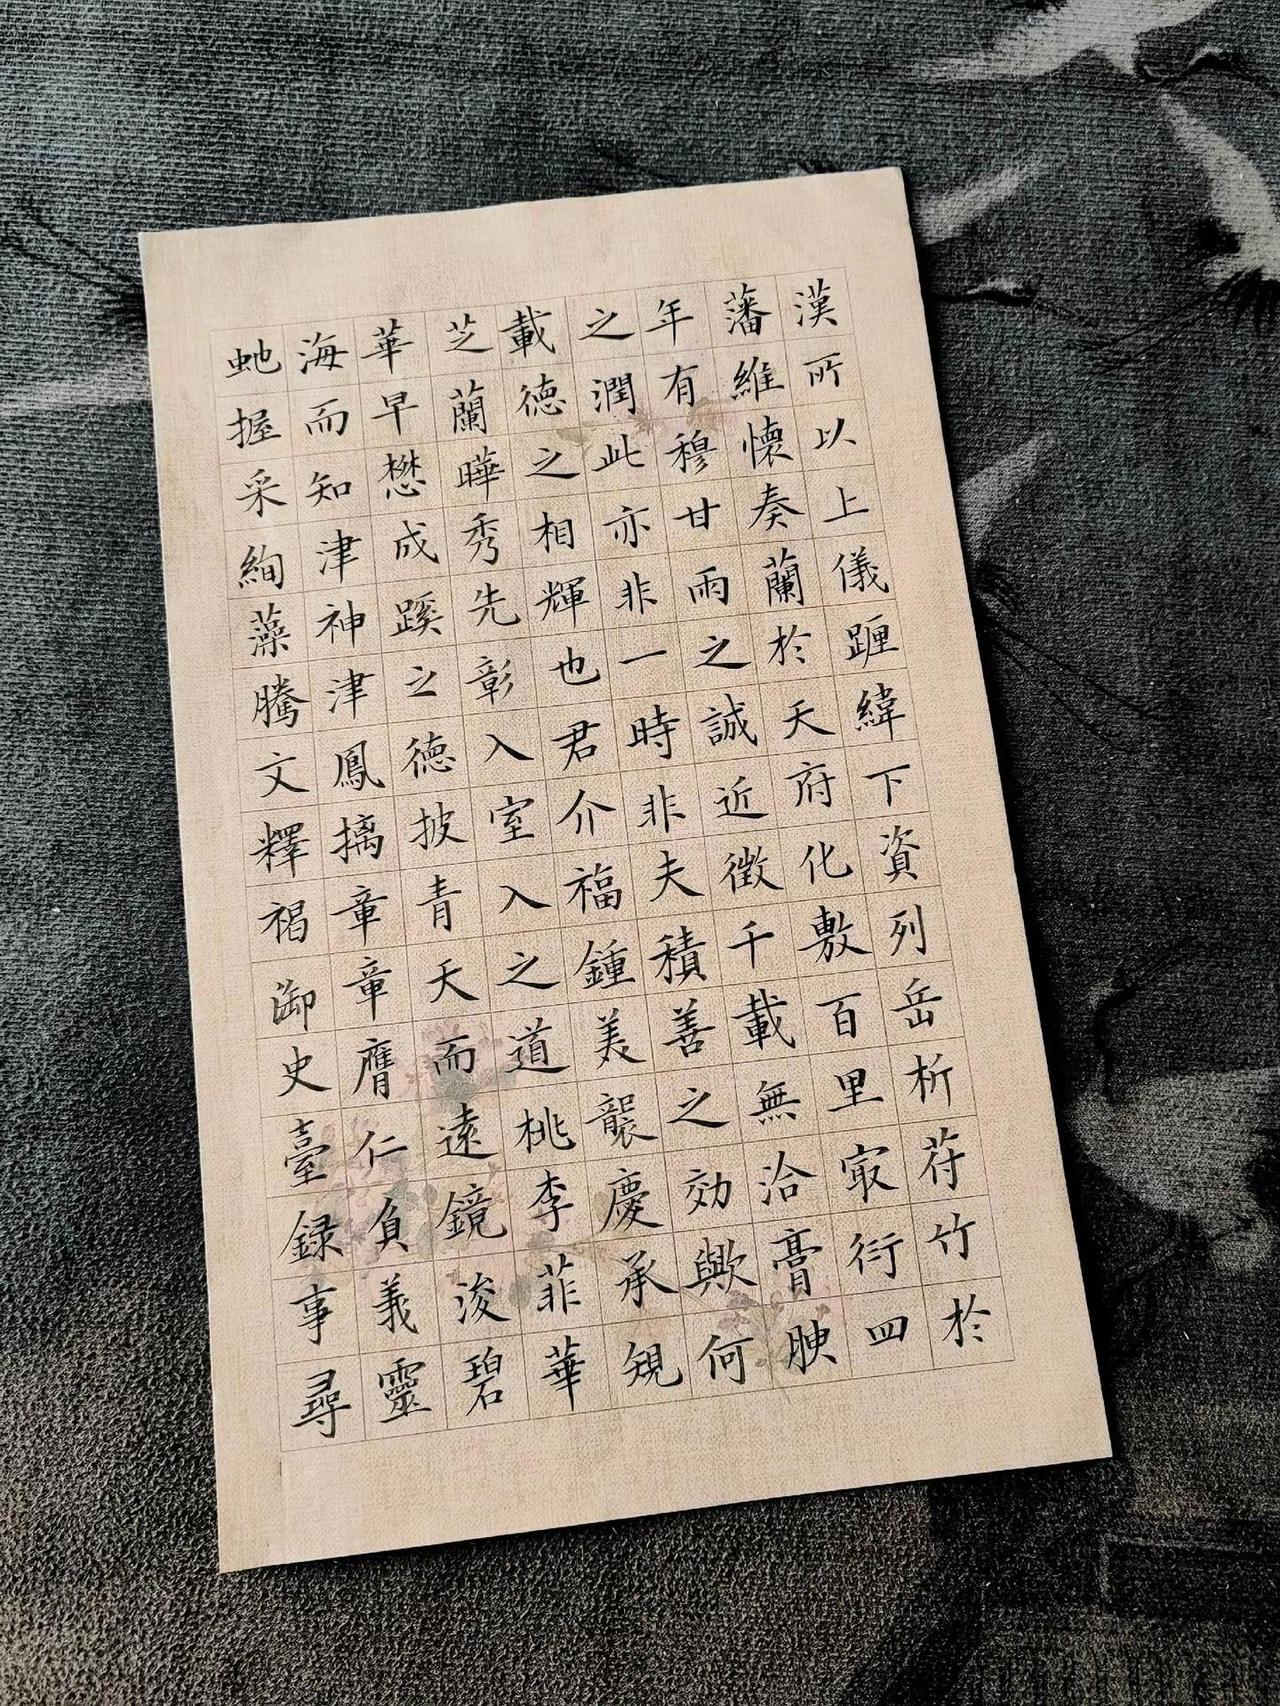 漢所以上儀躔緯下資列岳析苻竹於
藩維懷奏蘭於天府化敷百里冣衍四
年有穆甘雨之誠近徵千載無洽膏腴
之潤此亦非一時非夫積善之効歟何
載德之相輝也君介福鍾美襲慶承規
芝蘭曄秀先彰入室入之道桃李菲華
華早懋成蹊之德披青天而遠鏡浚碧
海而知津神津鳳摛章章膺仁負義靈
虵握采絢藻騰文釋褐御史臺録事尋